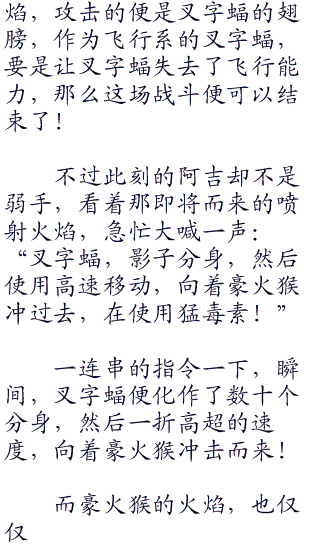 焰，攻击的便是叉字蝠的翅
膀，作为飞行系的叉字蝠，
要是让叉字蝠失去了飞行能
力，那么这场战斗便可以结
束了！
不过此刻的阿吉却不是
弱手，看着那即将而来的喷
射火焰，急忙大喊一声：
“叉字蝠，影子分身，然后
使用高速移动，向着豪火猴
冲过去，在使用猛毒素！”
一连串的指令一下，瞬
间，叉字蝠便化作了数十个
分身，然后一折高超的速
度，向着豪火猴冲击而来！
而豪火猴的火焰，也仅
仅